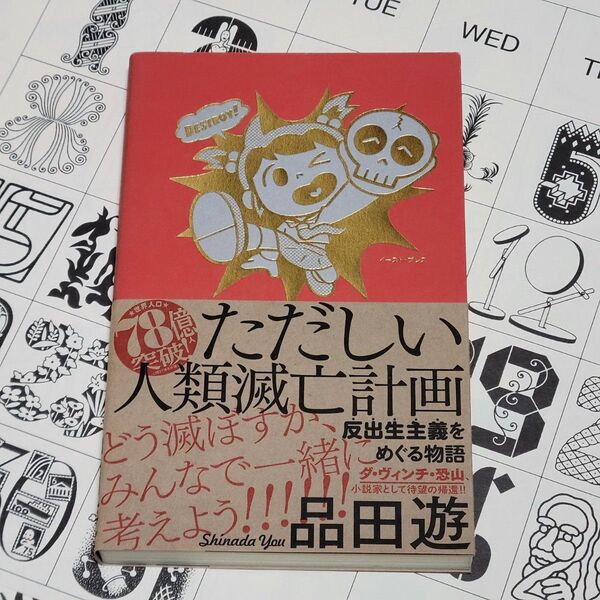 TUE
WED
DESTROY!
イースト・プレス
★世界人口★
78億人
突破!
ただしい
人類滅亡計画
反出生主義を
めぐる物語
どう滅ぼすか、
みんなで一緒に
考えよう!!!!!!
ダ・ヴィンチ・恐山、
小説家として待望の帰還!!
品田遊
Shinada You